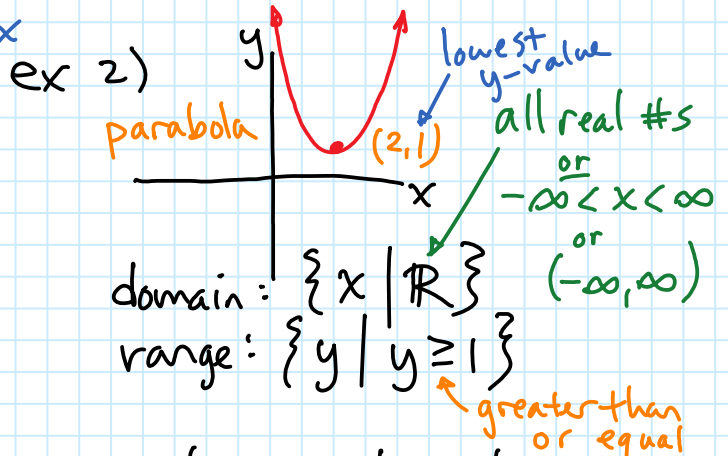 x
ex 2)
y
lowest
y-value
parabola
(2,1)
all real #s
or
-∞ < x < ∞
or
(-∞, ∞)
x
domain: {x | ℝ}
range: {y | y ≥ 1}
greater than
or equal